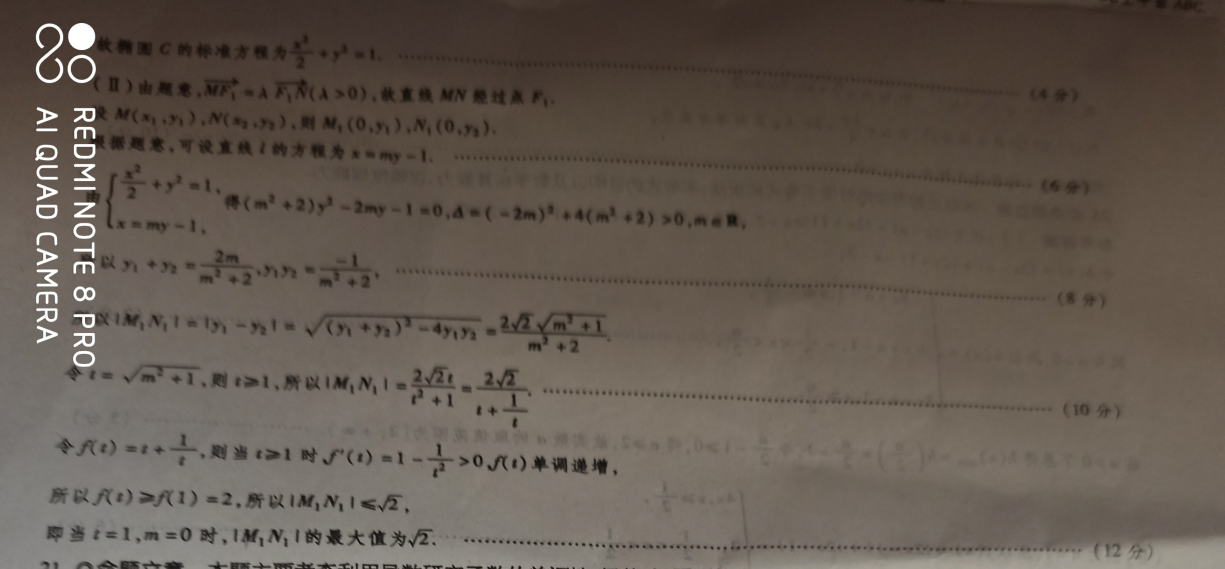 故椭圆 C 的标准方程为 x²/2 + y² = 1. (4 分)
(Ⅱ)由题意, MF₁ = λ F₁N (λ>0), 故直线 MN 经过点 F₁.
设 M(x₁,y₁), N(x₂,y₂), 则 M₁(0,y₁), N₁(0,y₂).
根据题意, 可设直线 l 的方程为 x = my - 1. (6 分)
由 { x²/2 + y² = 1, x = my - 1, 得 (m² + 2)y² - 2my - 1 = 0, Δ = (-2m)² + 4(m² + 2) > 0, m∈R,
以 y₁ + y₂ = 2m/(m² + 2), y₁y₂ = -1/(m² + 2), (8 分)
以 |M₁N₁| = |y₁ - y₂| = √((y₁ + y₂)² - 4y₁y₂) = 2√2 √(m² + 1)/(m² + 2).
令 t = √(m² + 1), 则 t≥1, 所以 |M₁N₁| = 2√2t/(t² + 1) = 2√2/(t + 1/t). (10 分)
令 f(t) = t + 1/t, 则当 t≥1 时, f′(t) = 1 - 1/t² > 0, f(t) 单调递增,
所以 f(t)≥f(1) = 2, 所以 |M₁N₁|≤√2,
即当 t = 1, m = 0 时, |M₁N₁| 的最大值为√2. (12 分)
REDMI NOTE 8 PRO
AI QUAD CAMERA